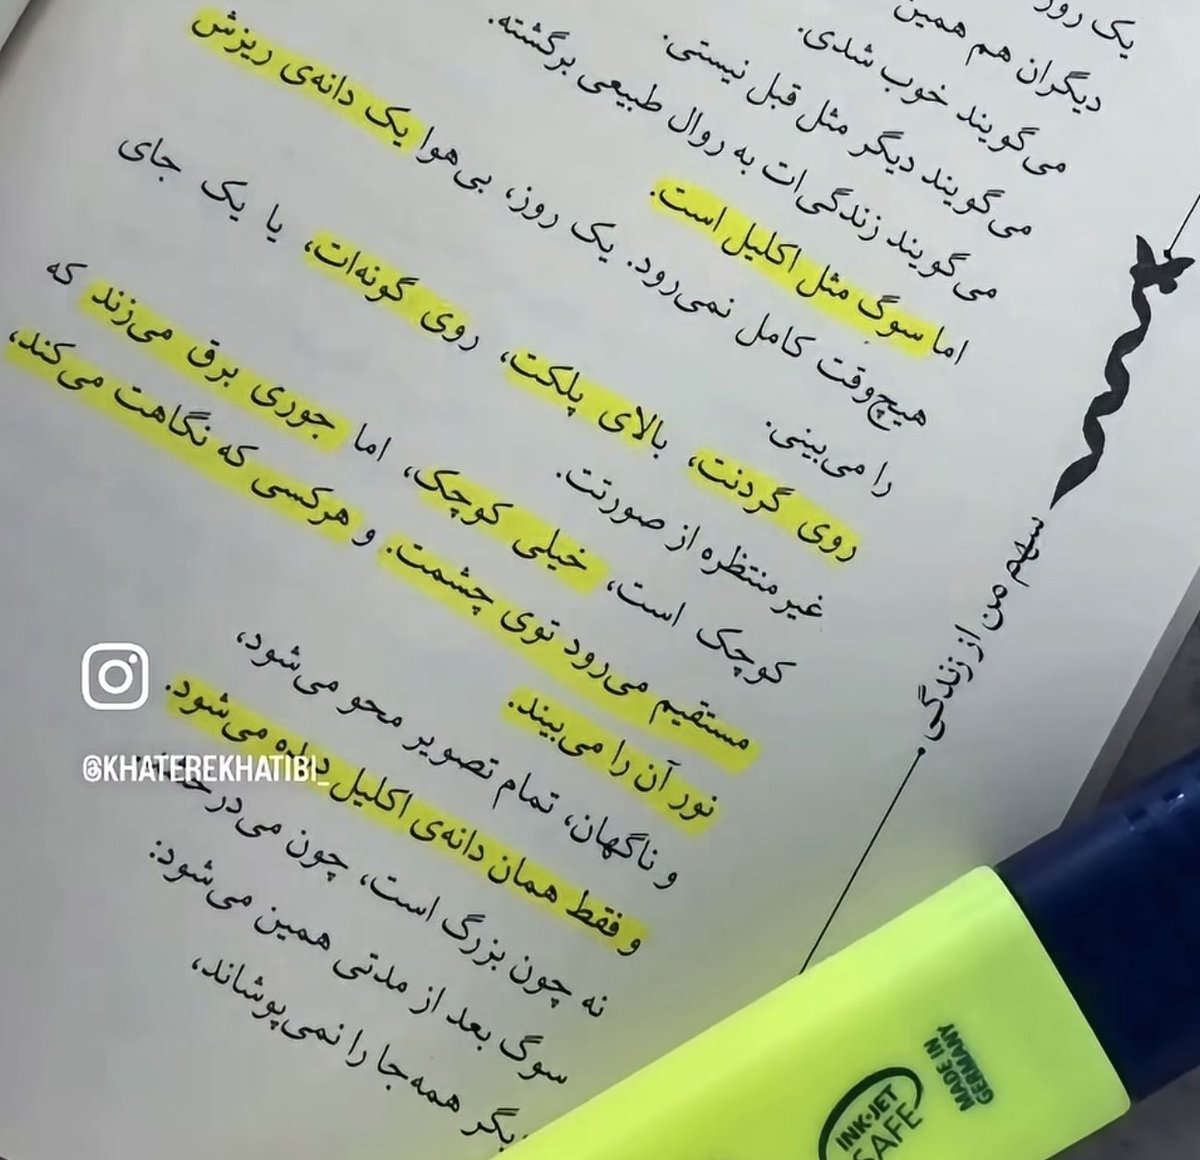 یک روز
دیگران هم همین
می‌گویند خوب شدی.
می‌گویند دیگر مثل قبل نیستی.
می‌گویند زندگی‌ات به روال طبیعی برگشته.
اما سوگ مثل اکلیل است.
هیچ‌وقت کامل نمی‌رود. یک روز، بی‌هوا یک دانه‌ی ریزش
را می‌بینی.
روی گردنت، بالای پلکت، روی گونه‌ات، یا یک جای
غیرمنتظره از صورتت.
کوچک است، خیلی کوچک، اما جوری برق می‌زند که
مستقیم می‌رود توی چشمت. و هرکسی که نگاهت می‌کند،
نور آن را می‌بیند.
و ناگهان، تمام تصویر محو می‌شود،
و فقط همان دانه‌ی اکلیل دیده می‌شود.
نه چون بزرگ است، چون می‌درخشد
سوگ بعد از مدتی همین می‌شود:
همه‌جا را نمی‌پوشاند،
سهم من از زندگی
@KHATEREKHATIBI_
INK-JET
SAFE
MADE IN
GERMANY